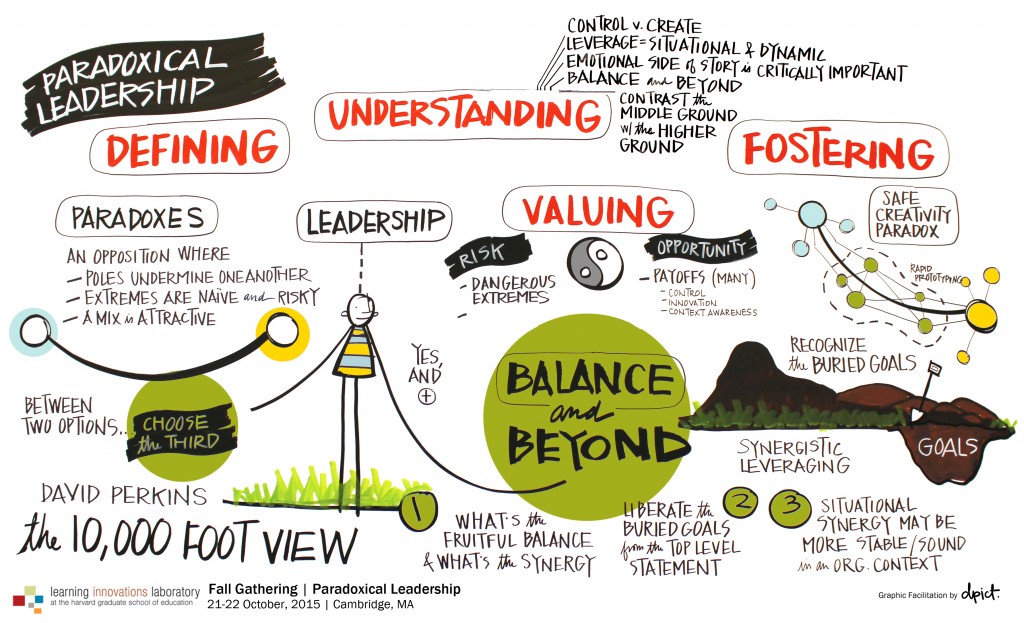 PARADOXICAL
LEADERSHIP
DEFINING
UNDERSTANDING
CONTROL v. CREATE
LEVERAGE = SITUATIONAL & DYNAMIC
EMOTIONAL SIDE of STORY is CRITICALLY IMPORTANT
BALANCE and BEYOND
CONTRAST the
MIDDLE GROUND
w/ the HIGHER
GROUND
FOSTERING
PARADOXES
AN OPPOSITION WHERE
– POLES UNDERMINE ONE ANOTHER
– EXTREMES ARE NAÏVE and RISKY
– A MIX is ATTRACTIVE
BETWEEN
TWO OPTIONS...
CHOOSE
the THIRD
LEADERSHIP
YES,
AND
+
VALUING
RISK
– DANGEROUS
EXTREMES
–
OPPORTUNITY
– PAYOFFS (MANY)
– CONTROL
– INNOVATION
– CONTEXT AWARENESS
SAFE
CREATIVITY
PARADOX
RAPID
PROTOTYPING
BALANCE
and
BEYOND
RECOGNIZE
the BURIED GOALS
GOALS
SYNERGISTIC
LEVERAGING
DAVID PERKINS
the 10,000 FOOT VIEW
1
WHAT'S the
FRUITFUL BALANCE
& WHAT'S the SYNERGY
LIBERATE the
BURIED GOALS
from the TOP LEVEL
STATEMENT
2
3
SITUATIONAL
SYNERGY MAY BE
MORE STABLE/SOUND
in an ORG. CONTEXT
learning innovations laboratory
at the harvard graduate school of education
Fall Gathering | Paradoxical Leadership
21-22 October, 2015 | Cambridge, MA
Graphic Facilitation by dpict.